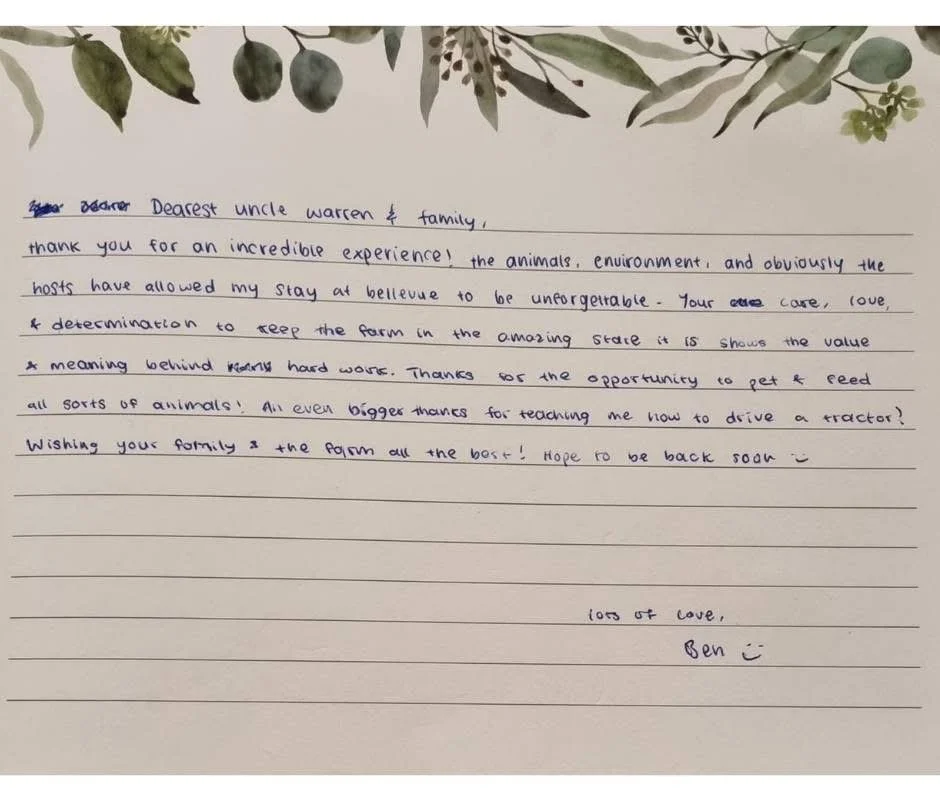 Dearest uncle warren & family,
thank you for an incredible experience! the animals, environment, and obviously the
hosts have allowed my stay at bellevue to be unforgettable. Your care, love,
& determination to keep the farm in the amazing state it is shows the value
& meaning behind hard work. Thanks for the opportunity to pet & feed
all sorts of animals! An even bigger thanks for teaching me how to drive a tractor!
Wishing your family & the farm all the best! Hope to be back soon
lots of love,
Ben